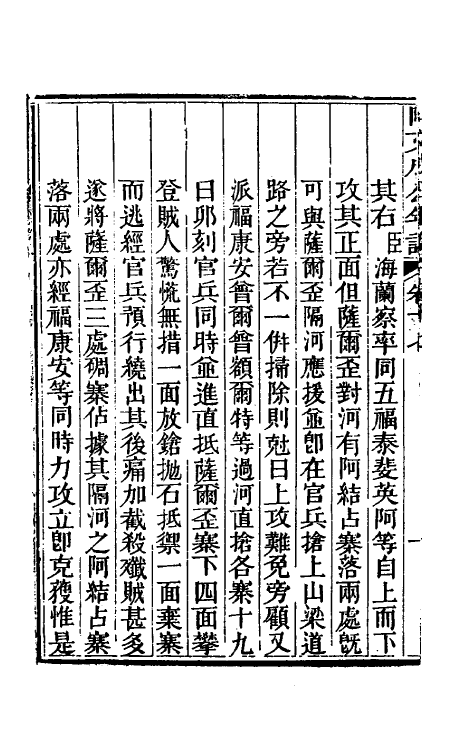 其右臣海蘭察率同五福泰斐英阿等自上而下
攻其正面但薩爾歪對河有阿結占寨落兩處旣
可與薩爾歪隔河應援並卽在官兵搶上山梁道
路之旁若不一併掃除則尅日上攻難免旁顧又
派福康安曾爾曾額爾特等過河直搶各寨十九
日卯刻官兵同時並進直抵薩爾歪寨下四面攀
登賊人驚慌無措一面放鎗抛石抵禦一面棄寨
而逃經官兵預行繞出其後痛加截殺殲賊甚多
遂將薩爾歪三處碉寨佔據其隔河之阿結占寨
落兩處亦經福康安等同時力攻立卽克獲惟是